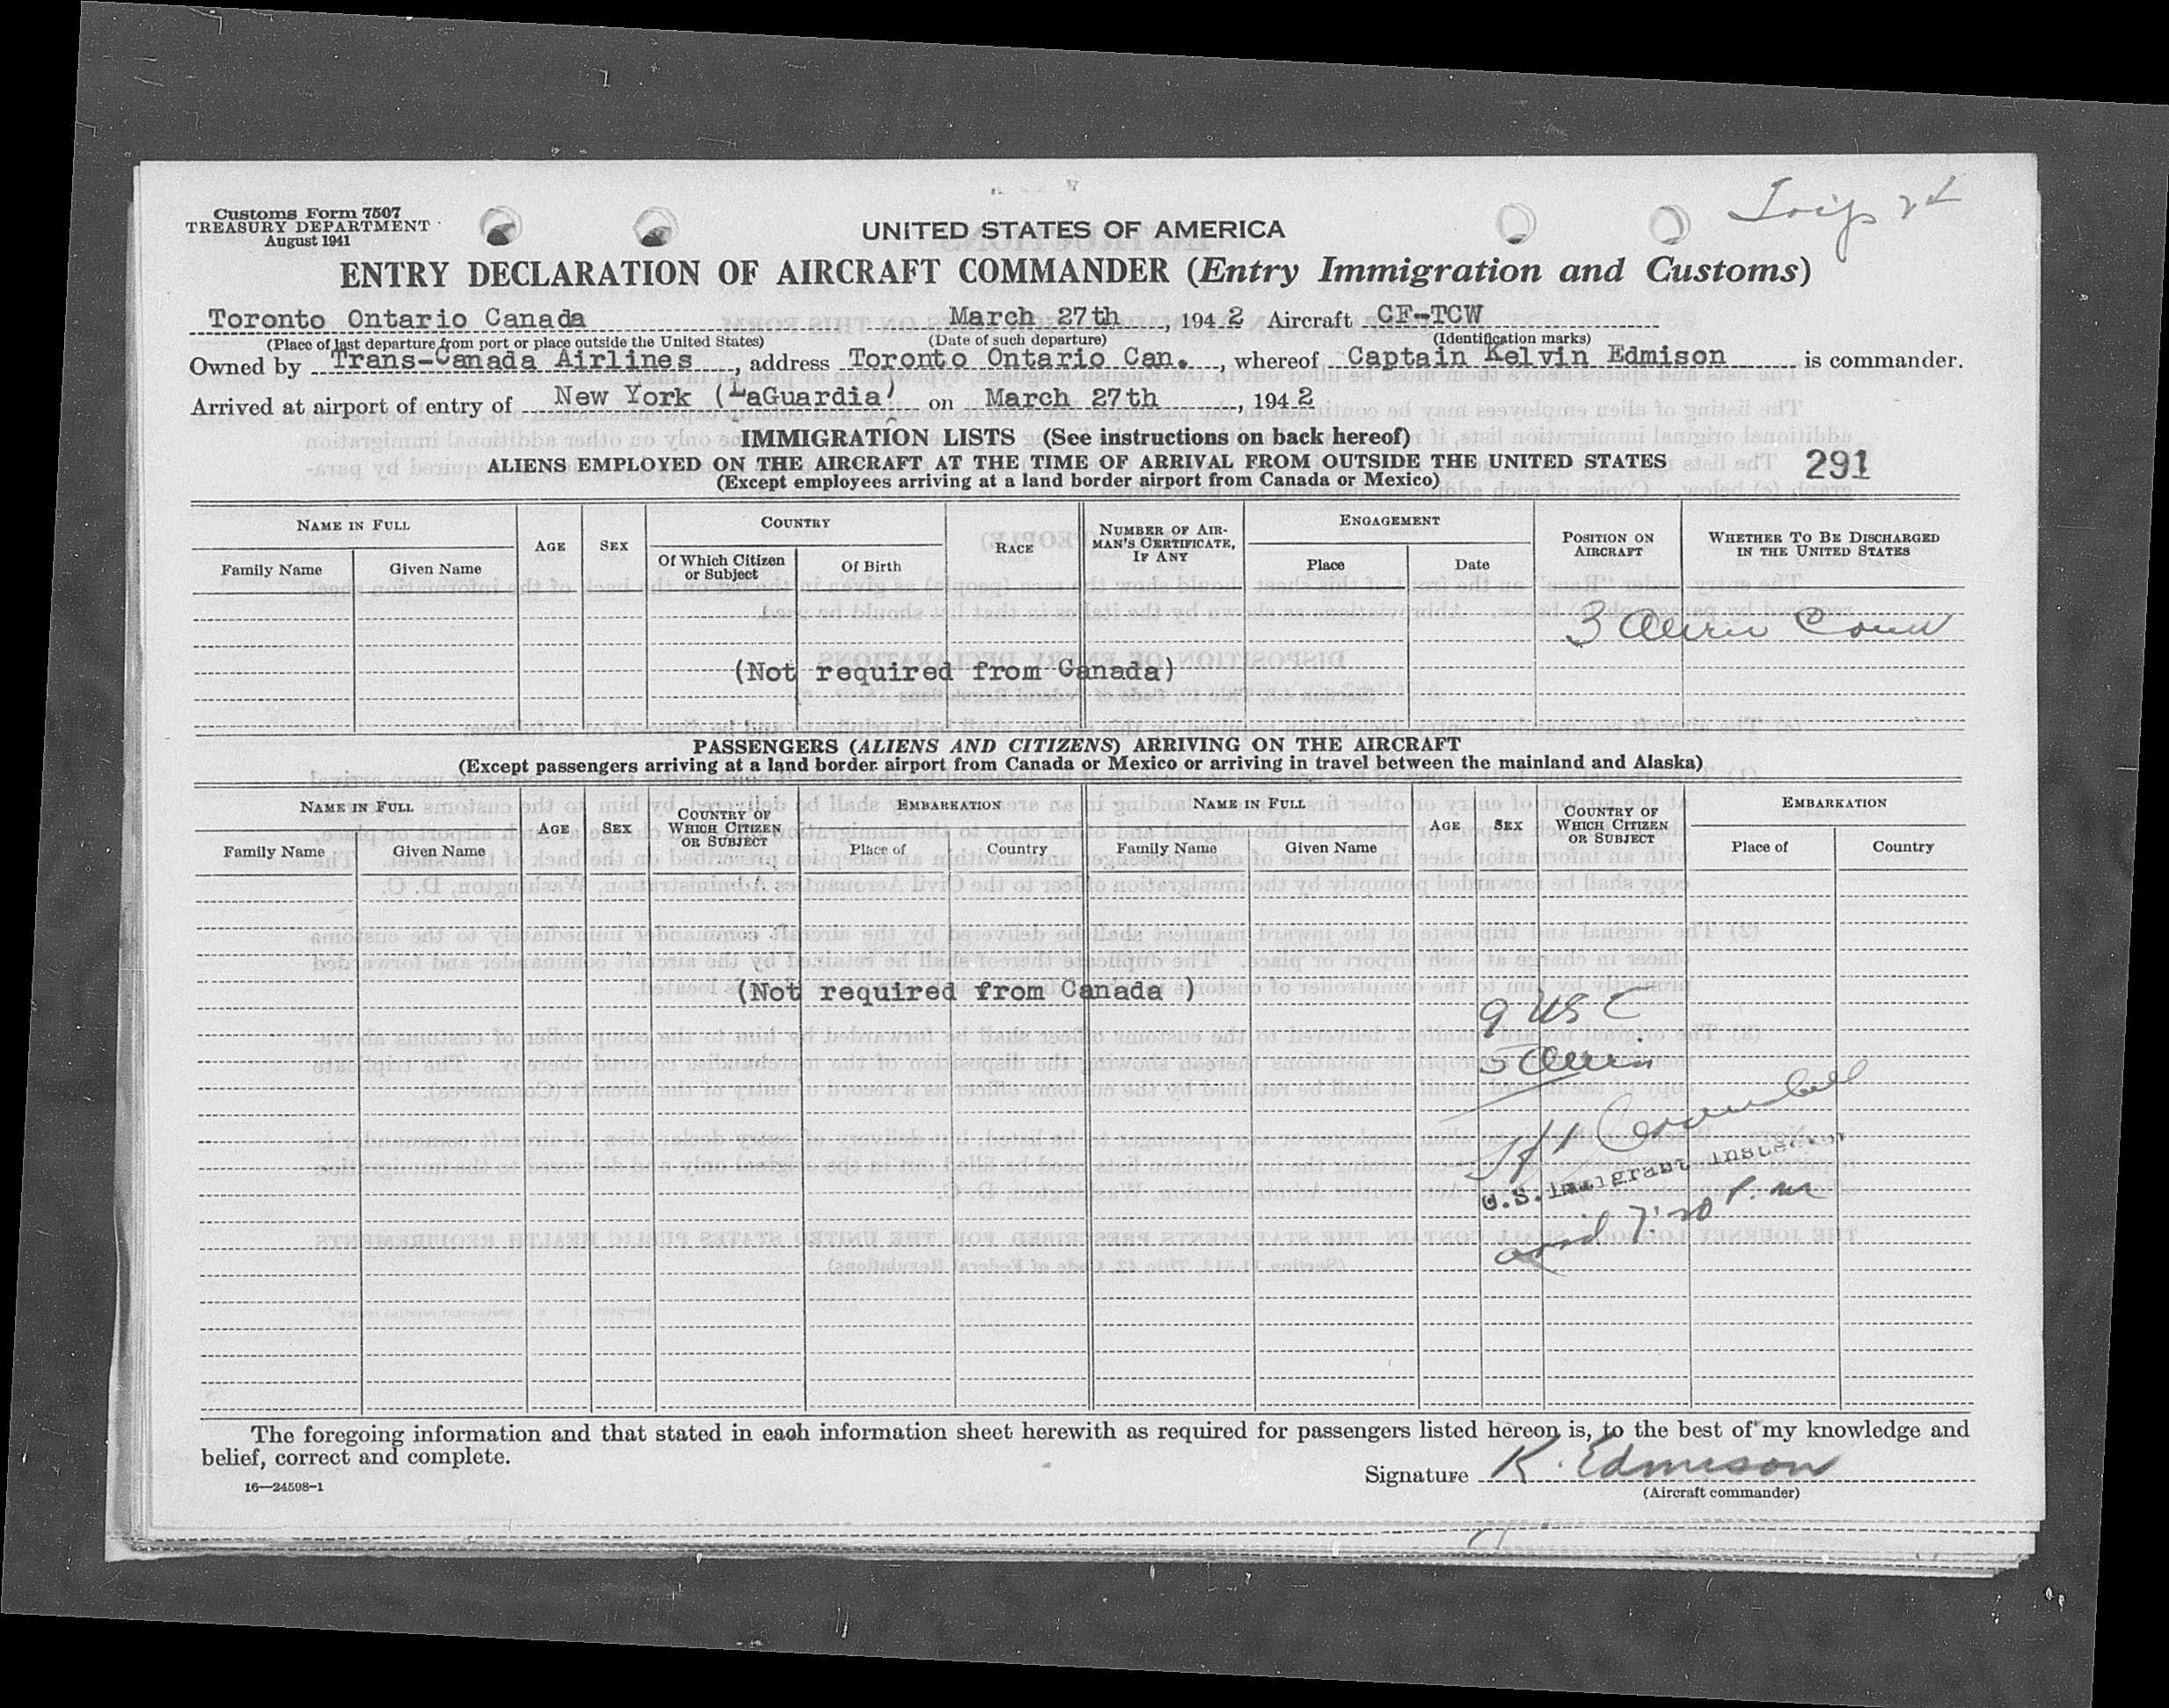 Customs Form 7507
TREASURY DEPARTMENT
August 1941
UNITED STATES OF AMERICA
ENTRY DECLARATION OF AIRCRAFT COMMANDER (Entry Immigration and Customs)
Toronto Ontario Canada March 27th, 1942 Aircraft CF-TCW
(Place of last departure from port or place outside the United States) (Date of such departure) (Identification marks)
Owned by Trans-Canada Airlines, address Toronto Ontario Can., whereof Captain Kelvin Edmison is commander.
Arrived at airport of entry of New York (LaGuardia) on March 27th, 1942
IMMIGRATION LISTS (See instructions on back hereof)
ALIENS EMPLOYED ON THE AIRCRAFT AT THE TIME OF ARRIVAL FROM OUTSIDE THE UNITED STATES 291
(Except employees arriving at a land border airport from Canada or Mexico)
NAME IN FULL AGE SEX COUNTRY RACE NUMBER OF AIRMAN'S CERTIFICATE, IF ANY ENGAGEMENT POSITION ON AIRCRAFT WHETHER TO BE DISCHARGED IN THE UNITED STATES
Family Name Given Name Of Which Citizen or Subject Of Birth Place Date
3
(Not required from Canada)
PASSENGERS (ALIENS AND CITIZENS) ARRIVING ON THE AIRCRAFT
(Except passengers arriving at a land border airport from Canada or Mexico or arriving in travel between the mainland and Alaska)
NAME IN FULL AGE SEX COUNTRY OF WHICH CITIZEN OR SUBJECT EMBARKATION NAME IN FULL AGE SEX COUNTRY OF WHICH CITIZEN OR SUBJECT EMBARKATION
Family Name Given Name Place of Country Family Name Given Name Place of Country
(Not required from Canada )
9 USC
5
U.S. Immigrant Inspector
7:20 P.M
The foregoing information and that stated in each information sheet herewith as required for passengers listed hereon is, to the best of my knowledge and
belief, correct and complete.
Signature K. Edmison
16—24598-1
(Aircraft commander)